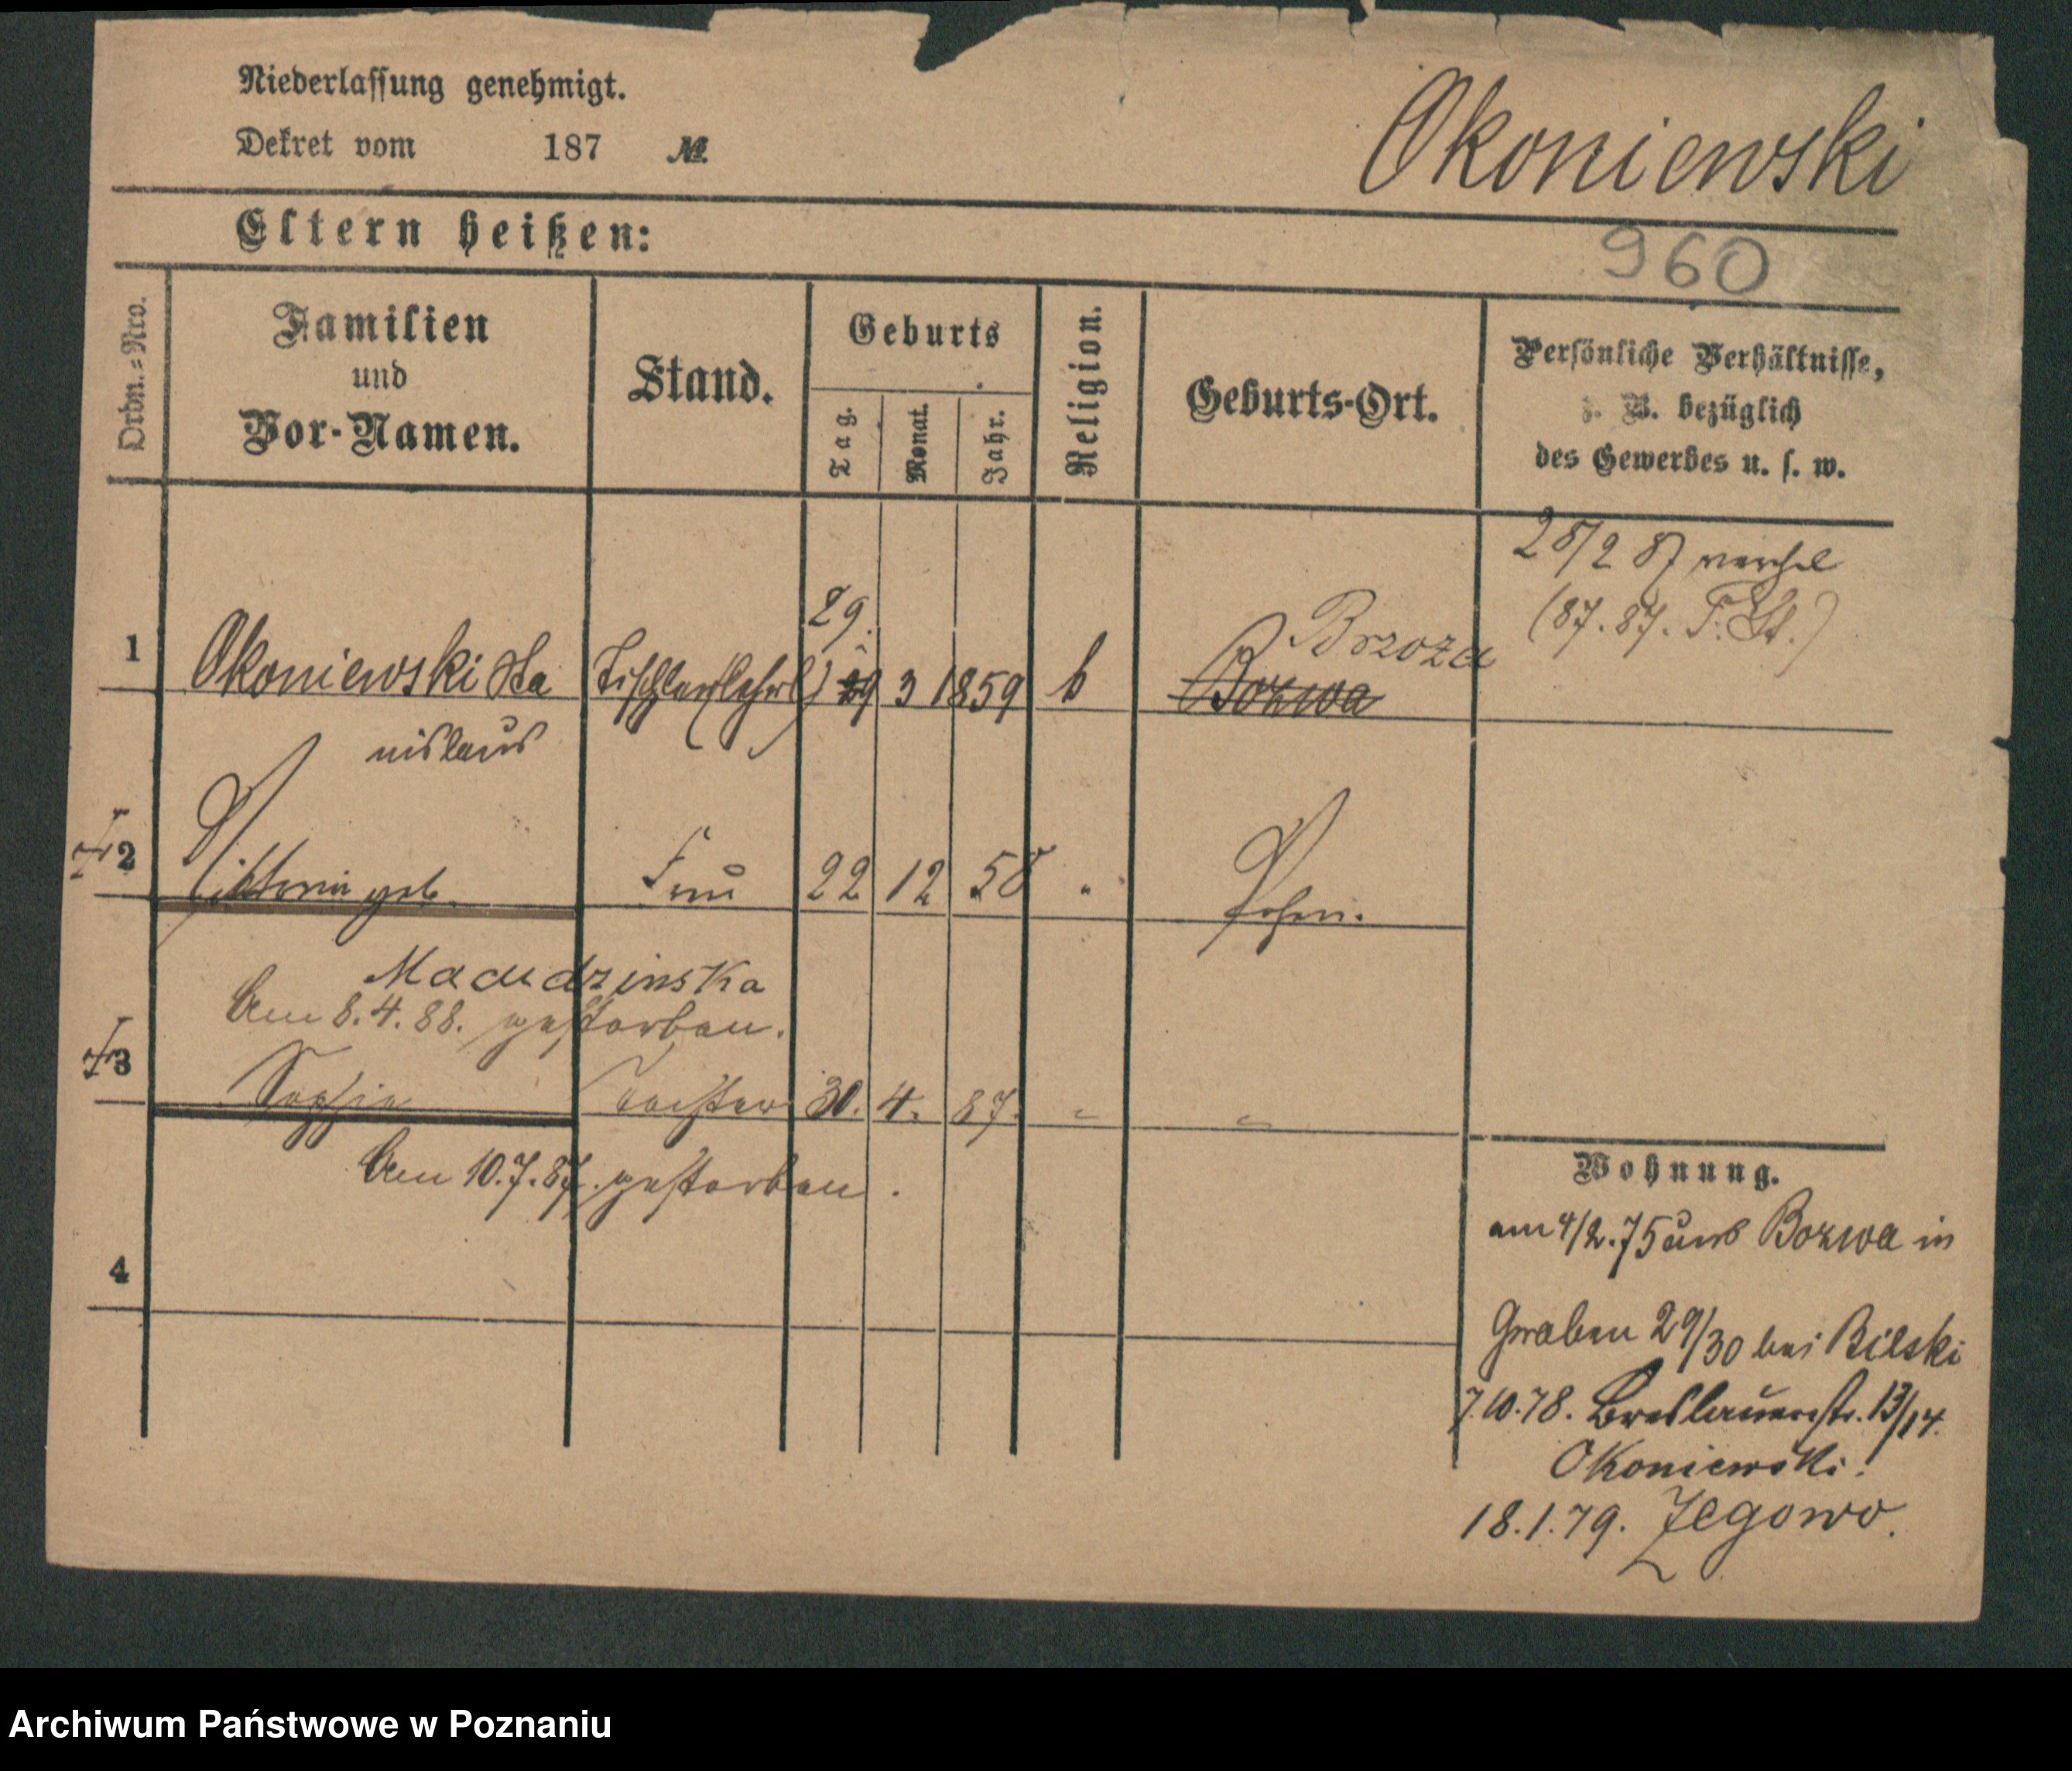 Niederlassung genehmigt.
Okoniewski
Dekret vom 187 №
Eltern heißen:
960
Ordn.=Nro.
Familien
und
Vor-Namen.
Stand.
Geburts
Tag.
Monat.
Jahr.
Religion.
Geburts-Ort.
Persönliche Verhältnisse,
z. B. bezüglich
des Gewerbes u. s. w.
28/2 87
(87. 87. F. St.)
29.
Brzoza
1 Okoniewski Sta Tischler(lehrl) 29 3 1859 k Bozwa
nislaus
2 Viktoria geb. Frau 22 12 58 " Posen.
Madudzinska
Am 8.4.88. gestorben.
3 Sophie Tochter 30. 4. 87. " "
Am 10.7.87. gestorben.
4
Wohnung.
am 4/2.75 aus Bozwa in
Graben 29/30 bei Bilski
7.10.78. Breslauerstr. 13/14.
Okoniewski.
18.1.79. Zegowo.
Archiwum Państwowe w Poznaniu